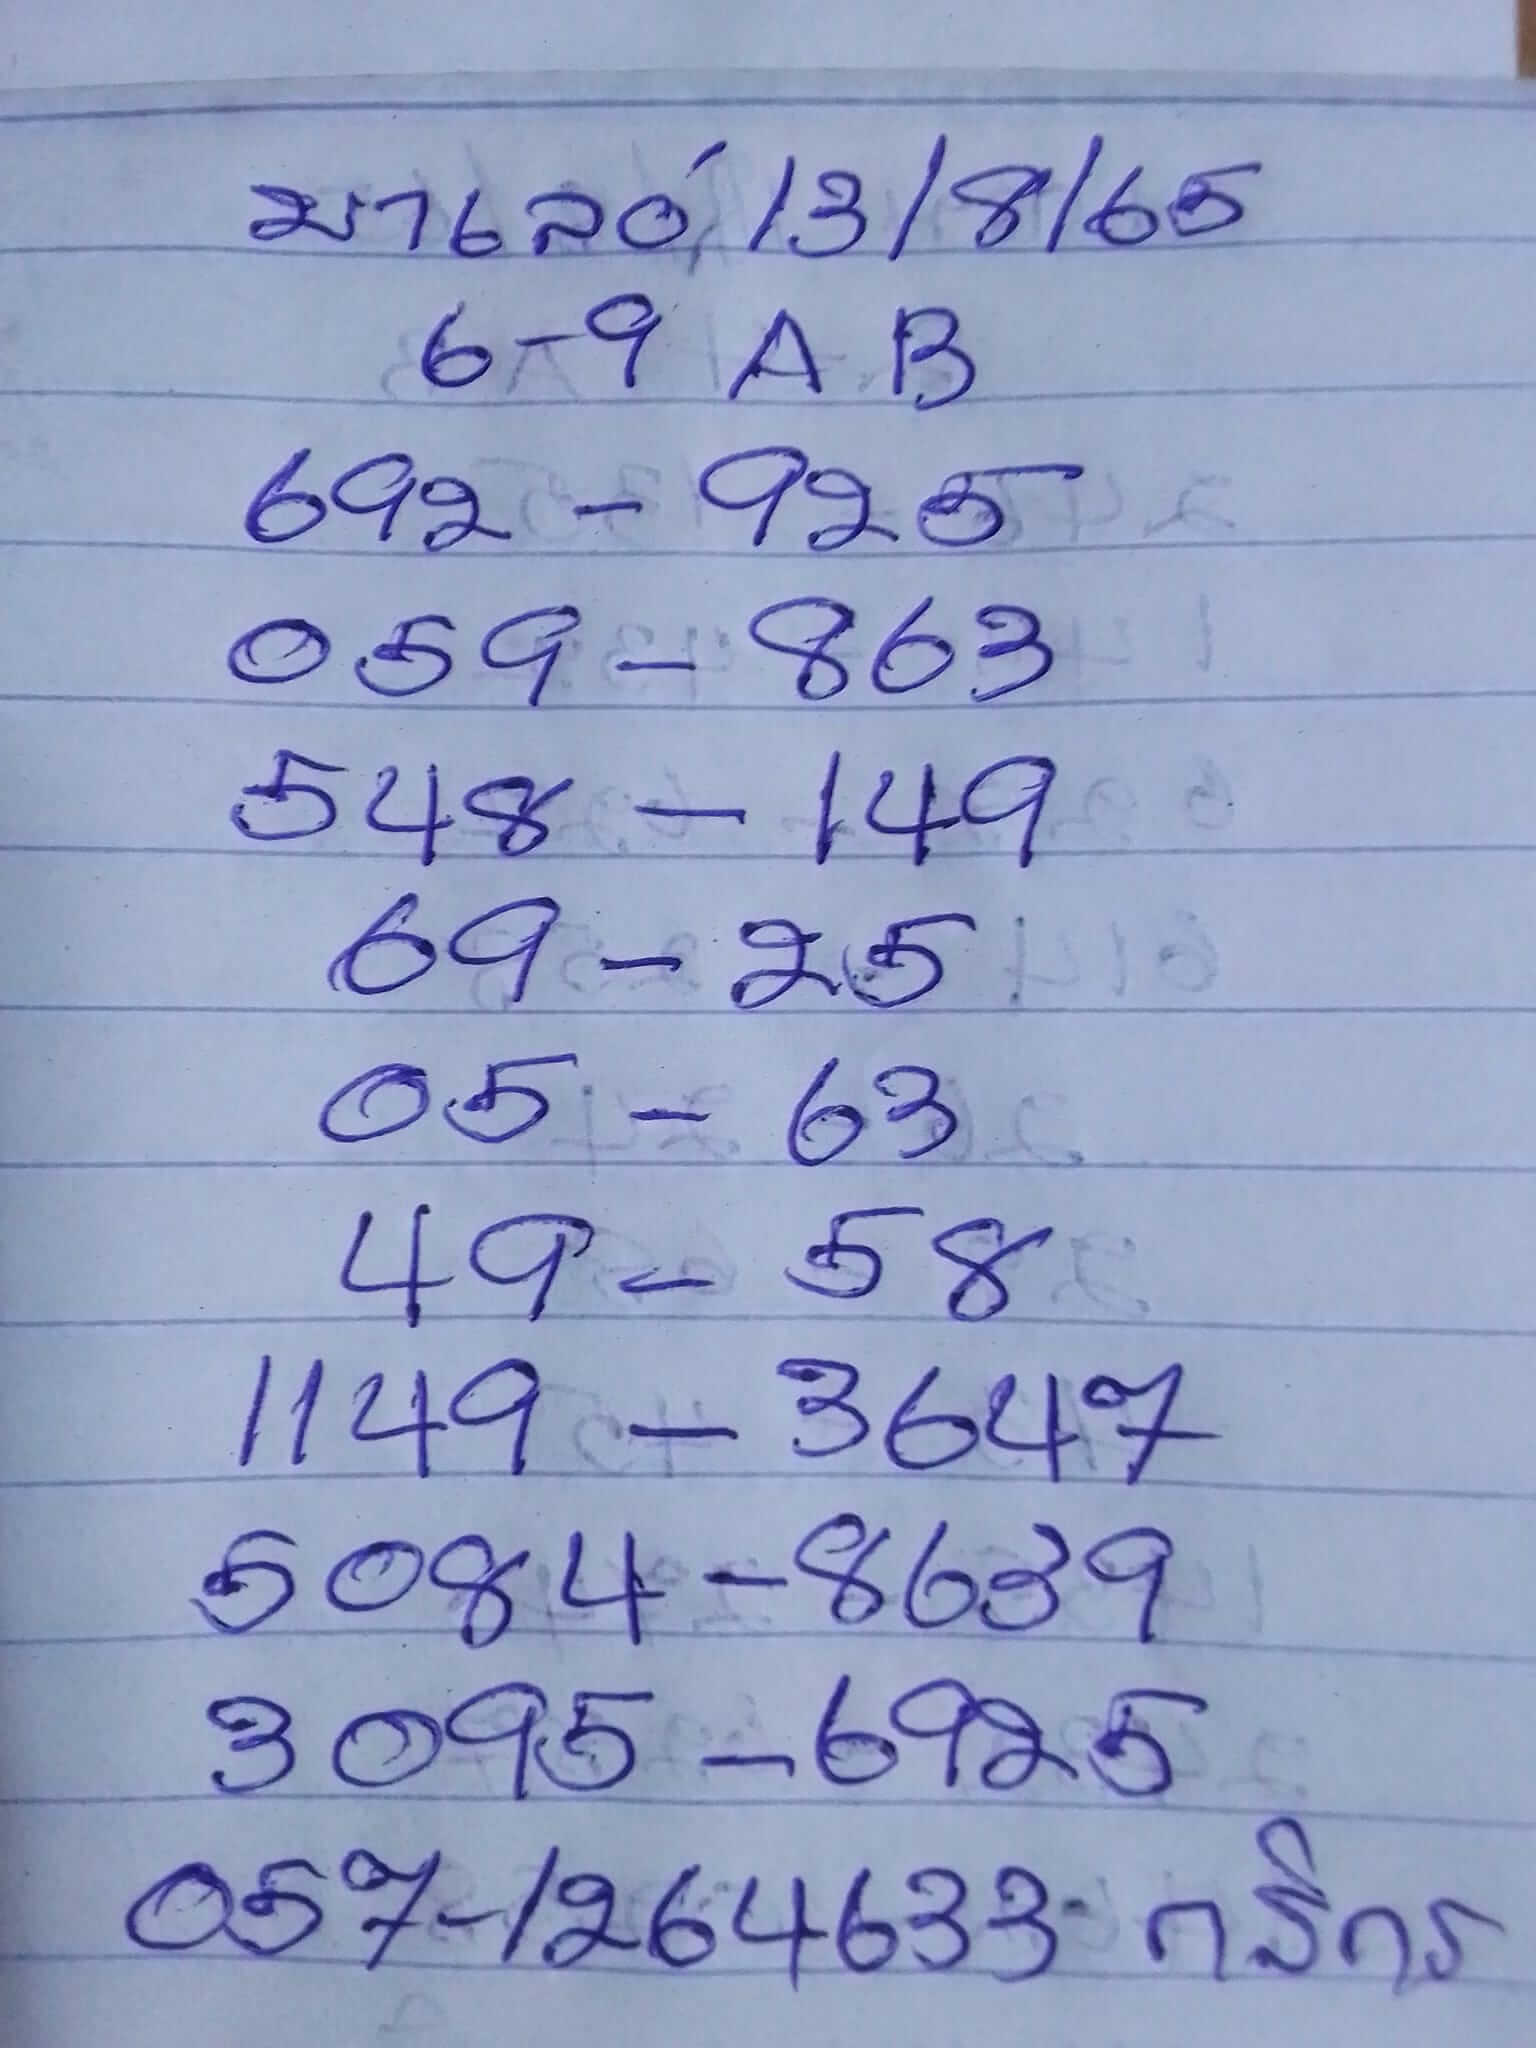 มาเลย์ 13/8/65
6-9 A B
692 - 925
059 - 863
548 - 149
69 - 25
05 - 63
49 - 58
1149 - 3647
5084 - 8639
3095 - 6925
057-1264633 กสิกร